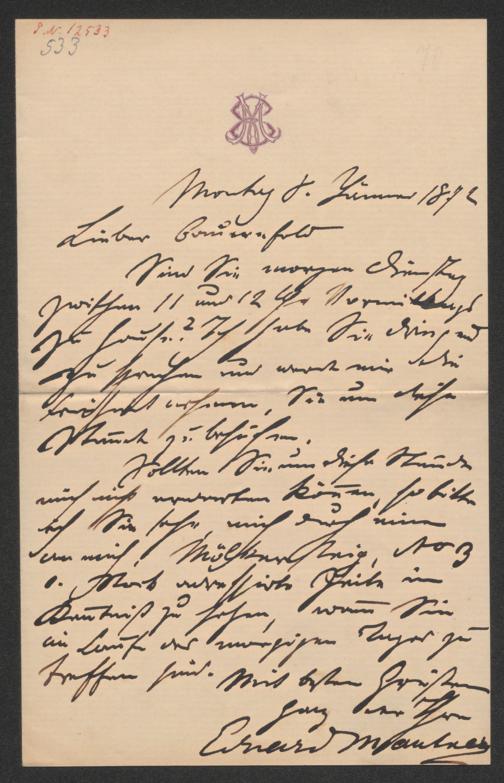 I. N. 12533
533
Montag 8. Jänner 1872
Lieber Bauernfeld
Sind Sie morgen Dienstag
zwischen 11 und 12 Uhr Vormittags
zu Hause? Ich habe Sie dringend
zu sprechen und werde mir die
Freiheit nehmen, Sie um diese
Stunde zu besuchen.
Sollten Sie um diese Stunde
mich nicht erwarten können, so bitte
ich Sie sehr, mich durch eine
an mich, Mölkersteig, No 3
1. Stock adressirte Zeile in
Kentniß zu setzen, wann Sie
im Laufe des morgigen Tages zu
treffen sind. Mit besten Grüßen
Ganz der Ihre
Eduard Mautner